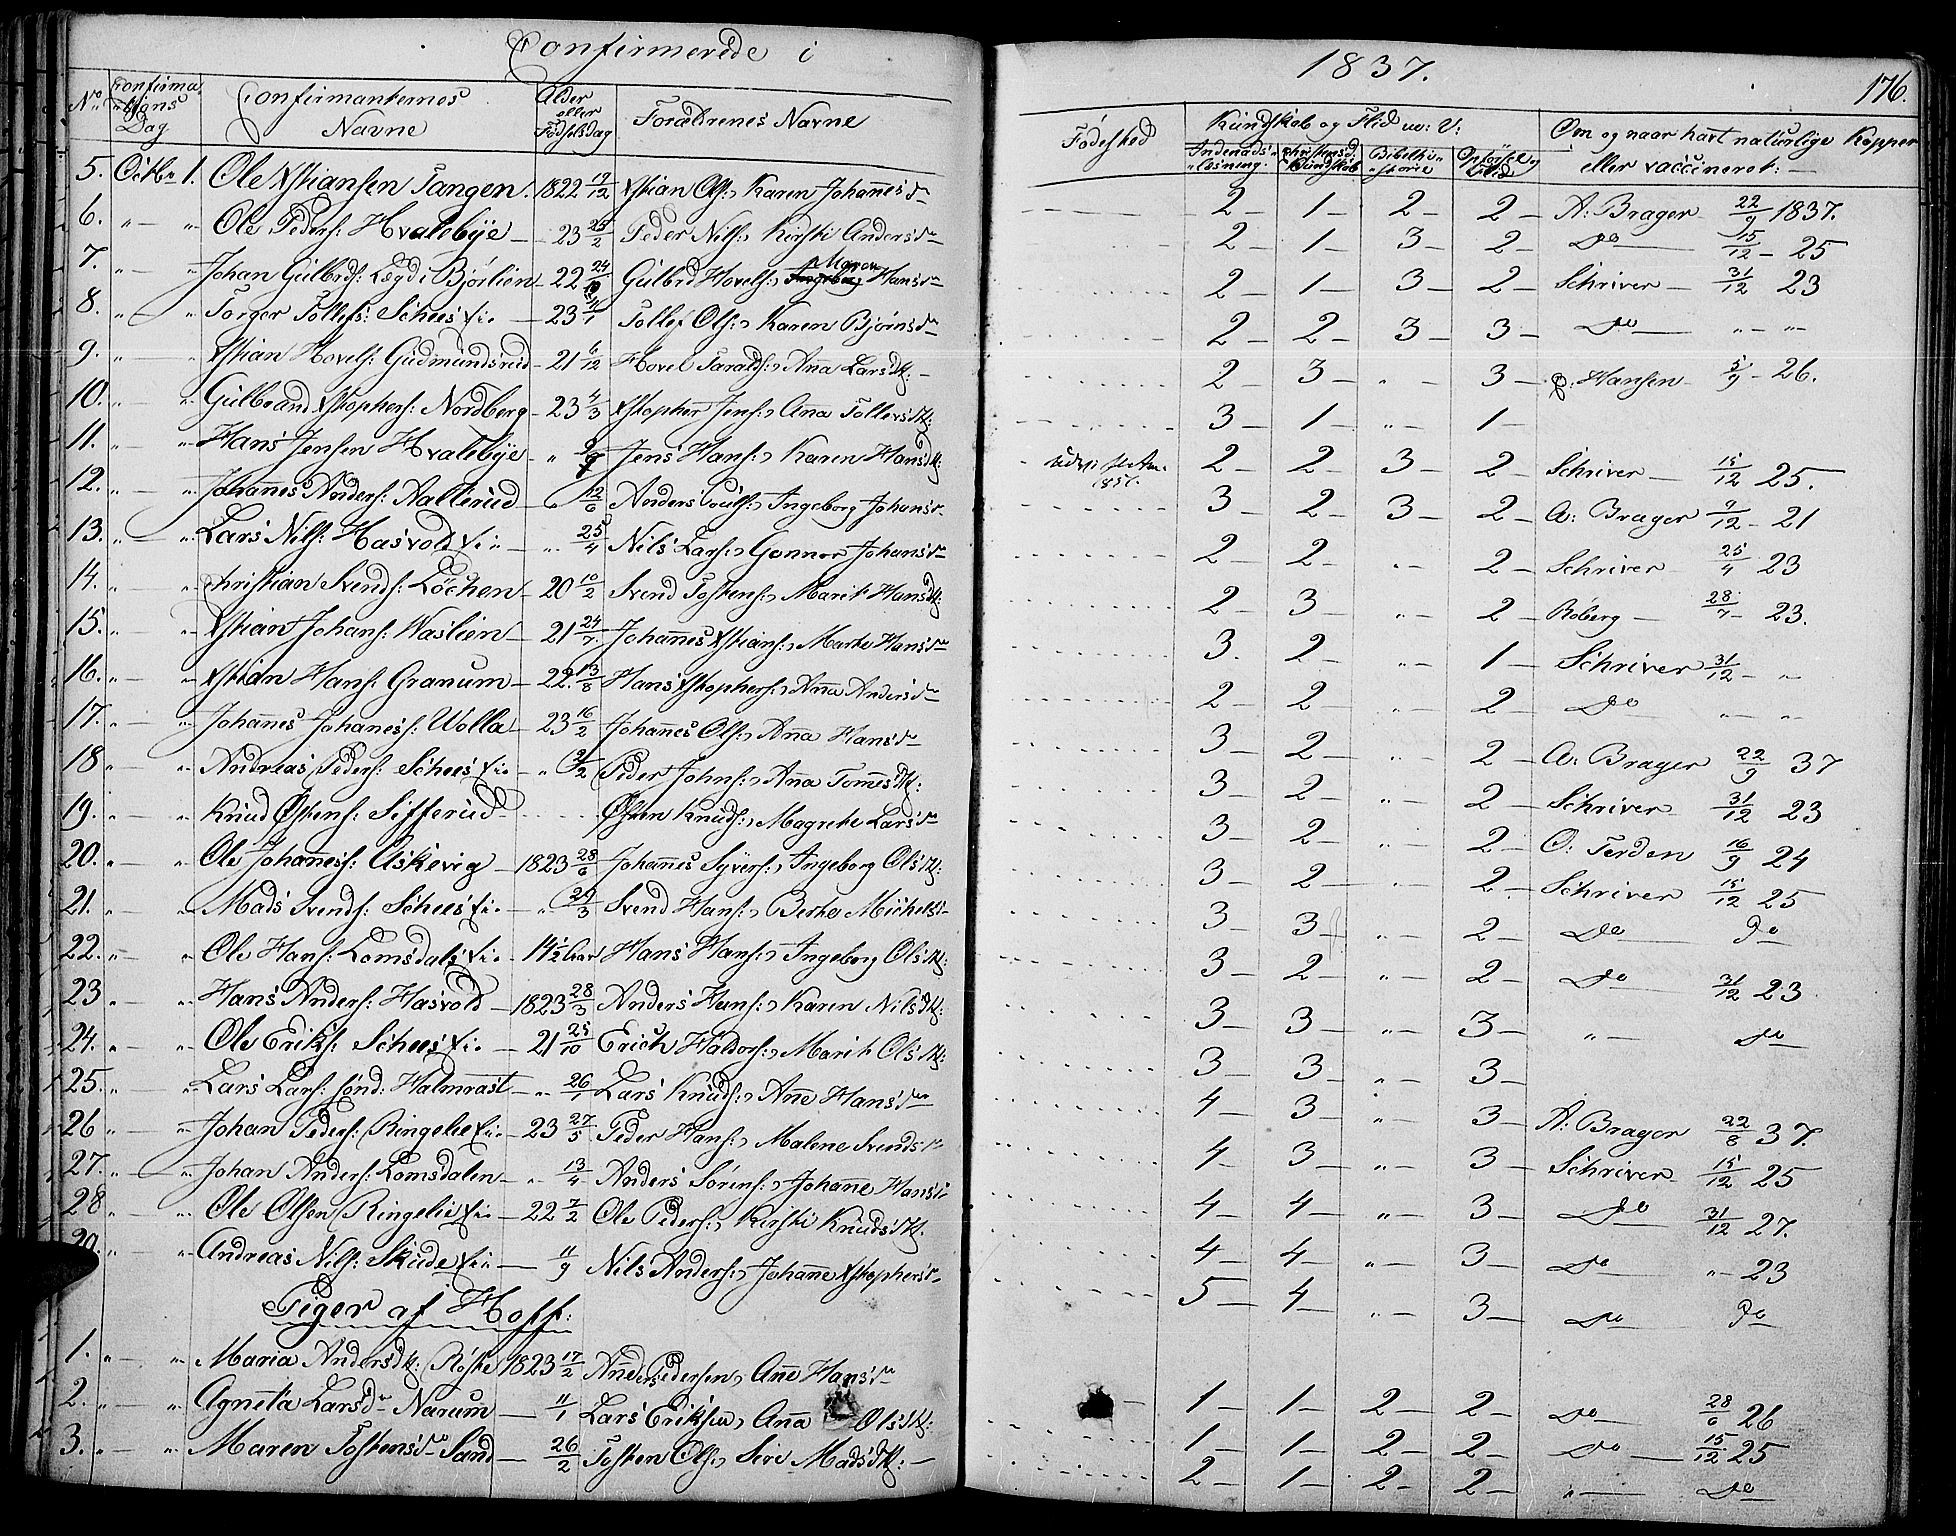 Confirmerede i
1837.
176.
No
Confirma
tions
Dag
Confirmanternes
Navne
Alder
eller
Fødselsdag
Forældrenes Navne
Fødested
Kundskab og Flid m: V:
Indenads
læsning
Christend
Kundskab
Bibelhi
storie
Opførsel og
Flid
Om og naar havt naturlige Kopper
eller vaccineret: —
5. Octbr 1. Ole Xstiansen Tangen. 1822 17/12 Xstian Ols: Karen Johannesdr 2 — 1 — 2 — 2 — A: Brager 22/9 1837.
6. " — " Ole Peders: Hvalebye — 23 25/2 Peder Nils: Kirsti Andersdr 2 — 1 — 3 — 2 — Do 15/12 — 25
7. " — " Johan Gulbrds: Lægd i Bjørlien — 22 24/10 Gulbrd Hovels: Maren Hansdr 2 — 1 — 3 — 2 — Schriver 31/12 23
8. " — " Torger Tollefs: Schees Ei: — 23 4/1 Tollef Ols: Karen Bjørnsdr 2 — 2 — 3 — 3 — Do " — "
9. " — " Xstian Hovels: Gudmundsrud — 21 6/12 Hovel Taralds: Anna Larsdtr: 2 — 3 — " — 3 — P: Hansen 5/9 — 26.
10. " — " Gulbrand Xstophers: Nordberg — 23 4/3 Xstopher Jens: Anna Tollevsdtr: 3 — 1 — " — 1 —
11. " — " Hans Jensen Hvalebye " Jens Hans: Karen Hansdtr: 2 — 2 — 3 — 2 — Schriver 15/12 25.
12. " — " Johannes Anders: Nallerud — 12/6 Anders Pouls: Ingeborg Johansdr 3 — 2 — 3 — 2 — A: Brager 9/12 — 21
13. " — " Lars Nils: Hasvold Ei: — " 25/4 Nils Lars: Gonnor Johansdr 2 — 2 — " — 2 — Schriver 25/4 23
14. " — " Christian Svends: Løchen — 20 10/2 Svend Tostens: Marit Hansdtr: 2 — 3 — " — 2 — Røberg 28/7 — 23.
15. " — " Xstian Johans: Waslien — 21 24/7. Johannes Xstians: Marte Hansdr 3. 2 — " — 1 — Schriver 31/12 — "
16. " — " Xstian Hans: Granum — 22. 13/8 Hans Xstophers: Anna Andersdr 2 — 2 — " — 2 — Do " — "
17. " — " Johannes Johaness: Wolla — 23 16/2 Johannes Ols: Anna Hansdr 3 — 2 — " — 2 — A: Brager 22/9 37
18 " — " Andreas Peders: Schees Ei: — " Peder Johns: Anna Tomesdtr: 3 — 2 — " — 2 — Schriver 31/12 23
19. " — " Knud Østens: Sifferud Østen Knuds: Magrete Larsdr 3 — 2 — " — 2 — O: Terden 16/9 24
20. " — " Ole Johaness: Askevig — 1823 28/6 Johannes Syvers: Ingeborg Olsdtr: 3 — 2 — " — 2 — Schriver 15/12 25
21. " — " Mads Svends: Schees Ei: — " 24/3 Svend Hans: Berte Michelsdr 3 — 3 — " — 2 — Do Do
22. " — " Ole Hans: Lomsdals Ei: — 14 1/2 Aar Hans Hans: Ingeborg Olsdtr: 3 — 2 — " — 2 — Do 31/12 23
23 " — " Hans Anders: Hasvold — 1823 28/3 Anders Hans: Karen Nilsdtr: 3 — 3 — " — 3 — " — Do
24. " — " Ole Eriks: Schees Ei: — 21 25/10 Erich Haldors: Marit Olsdtr: 3 — 3 — " — 3 —
25. " — " Lars Lars: Sønd: Halmrast — " 26/1 Lars Knuds: Ane Hansdr 4 — 3 — " — 3 — A: Brager 22/8 37.
26 " — " Johan Peders: Ringelie Ei: — 23 27/5 Peder Hans: Malene Svendsdr 4 — 3 — " — 3 — Schriver 15/12 25
27. " — " Johan Anders: Lomsdalen — " 13/4 Anders Sørens: Johanne Hansdr 4 — 4 — " — 3 — Do 31/12 27.
28 " — " Ole Olsen Ringelie Ei: — 22 7/2 Ole Peders: Kirsti Knudsdtr. 4 — 4 — " — 3 — Do " — 23
29. " — " Andreas Nils: Skude Ei: — 11/9 Nils Anders: Johanne Xstophersdr 5 — 4 — " — 3 — Do Do
Piger af Hoff:
1. " — " Maria Andersdtr: Røste 1823 17/2 Anders Pedersen, Ane Hansdr 1 — 1 — 2 — 2 — Do 28/6 26
2. " — " Agneta Larsdr Narum — 11/1 Lars Eriksen, Anna Olsdtr: 1 — 1 — 2 — 2 — Do 15/12 25
3. " — " Maren Tostensdr Sand — 26/2 Tosten Ols: Siri Madsdtr: — 2 — 1 — 2 — 2 — " — Do